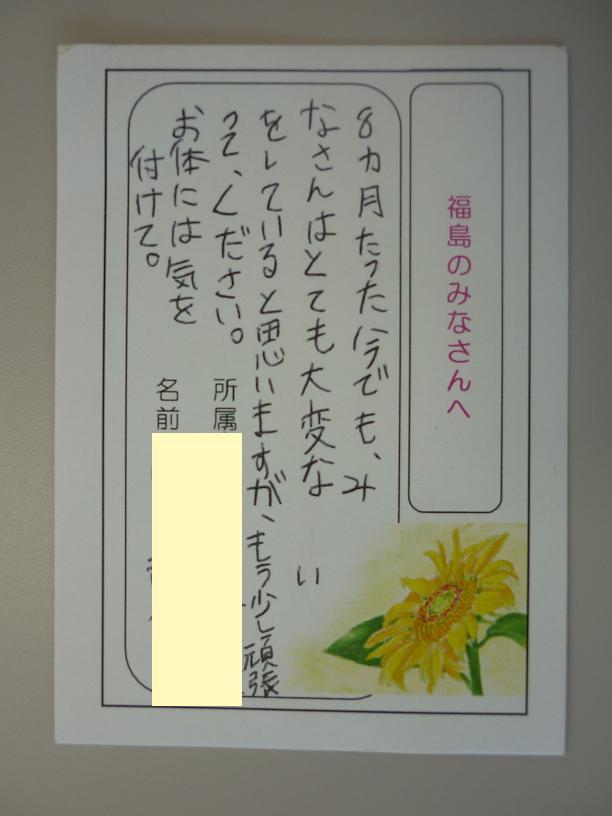 福島のみなさんへ
8カ月たった今でも、み
なさんはとても大変な い
をしていると思いますが、もう少し頑張
って、ください。
お体には気を
付けて。
所属
名前